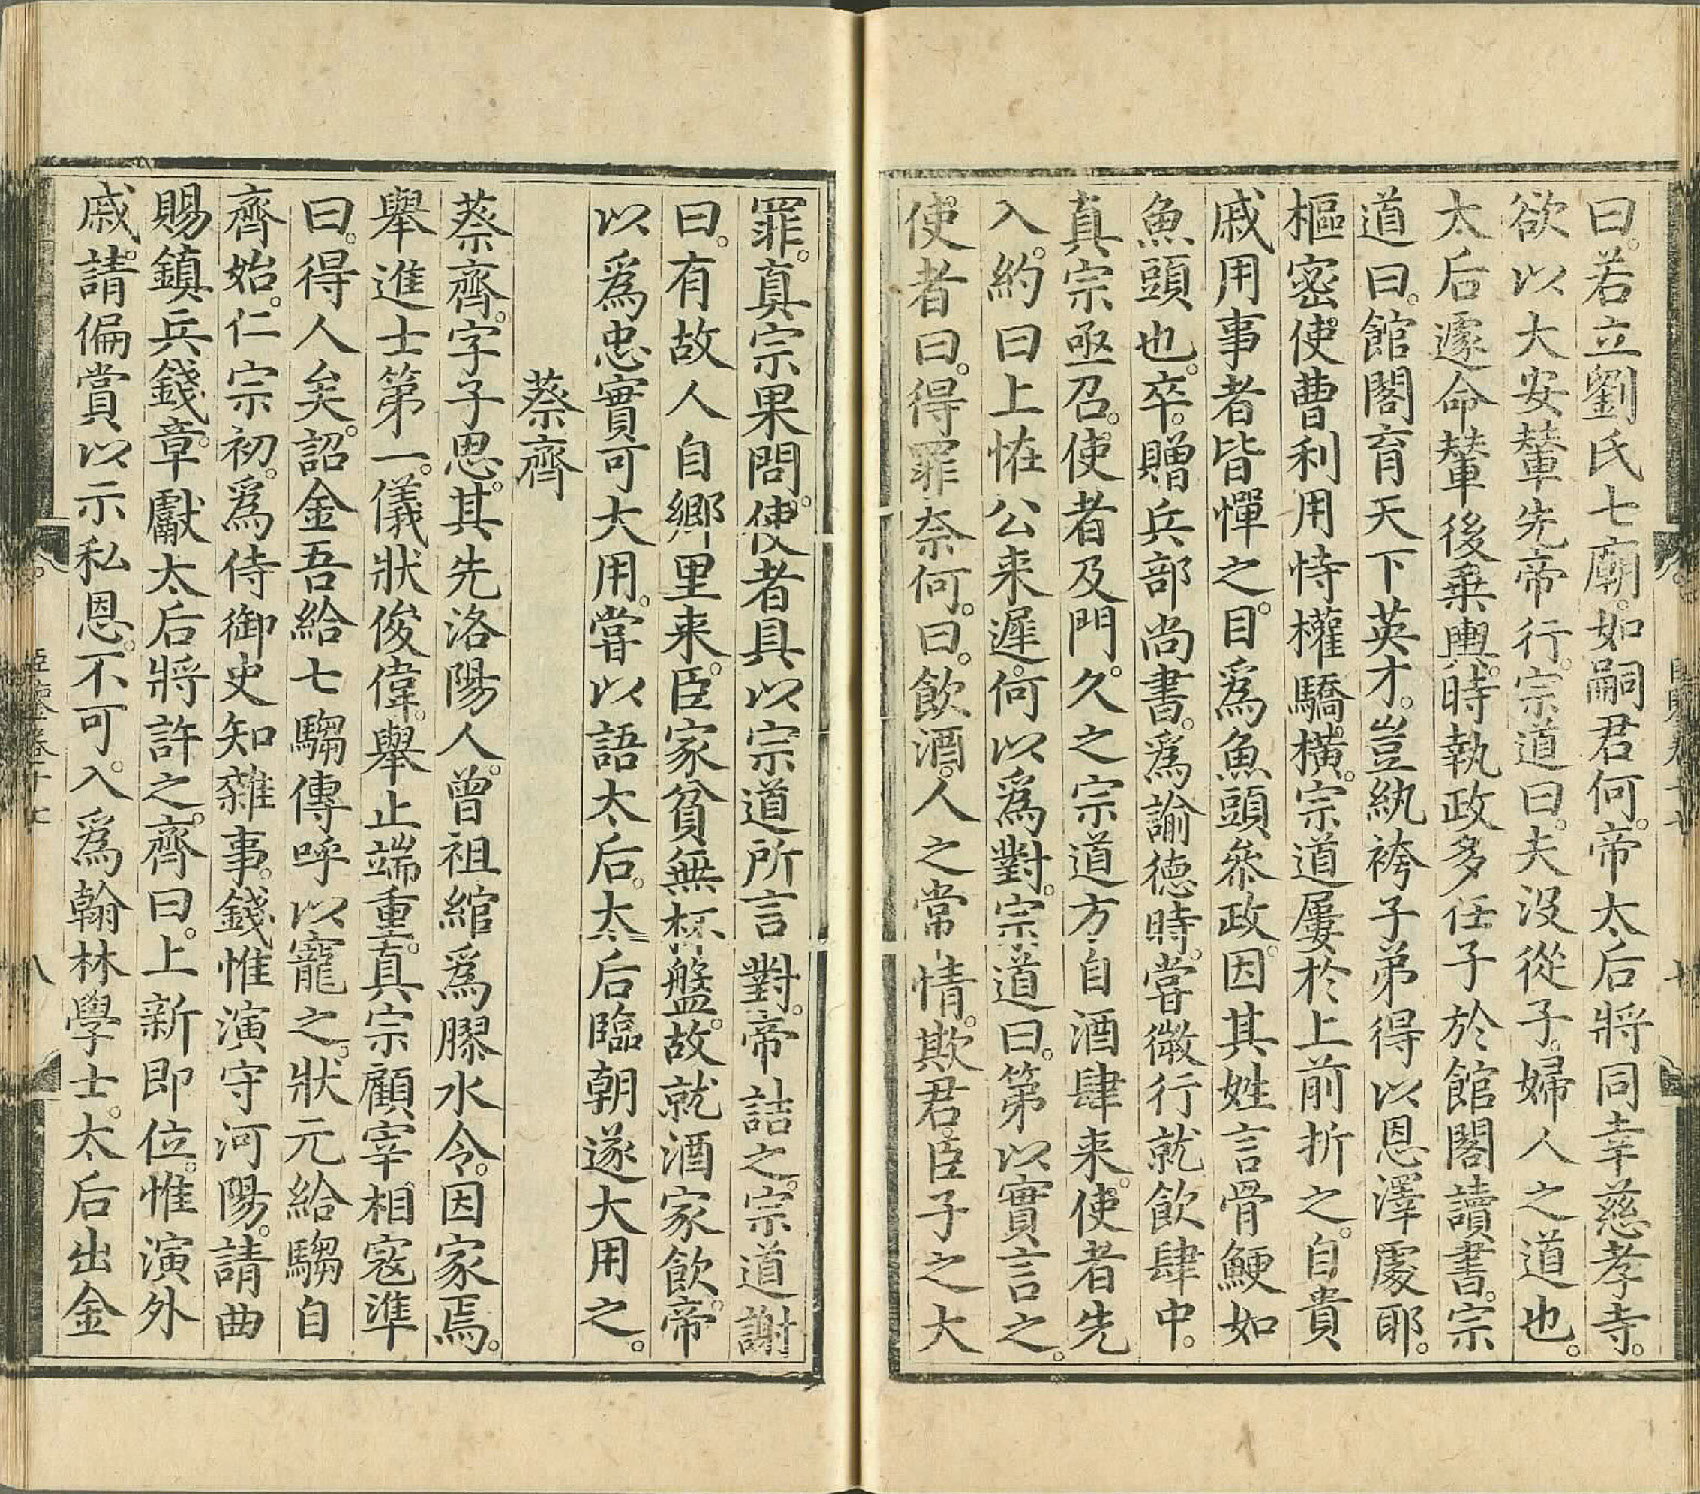 曰。若立劉氏七廟。如嗣君何。帝太后將同幸慈孝寺。
欲以大安輦先帝行。宗道曰。夫沒從子。婦人之道也。
太后遽命輦後乗輿。時執政多任子於館閣讀書。宗
道曰。館閣育天下英才。豈紈袴子弟得以恩澤處耶。
樞密使曹利用恃權驕橫。宗道屢於上前折之。自貴
戚用事者皆憚之。目爲魚頭叅政。因其姓言骨鯁如
魚頭也。卒。贈兵部尚書。爲諭徳時。嘗微行就飲肆中。
真宗亟召。使者及門。久之宗道方自酒肆来。使者先
入。約曰上恠公来遲。何以爲對。宗道曰。第以實言之。
使者曰。得罪奈何。曰。飲酒。人之常情。欺君臣子之大
罪。真宗果問。使者具以宗道所言對。帝詰之。宗道謝
曰。有故人自鄉里来。臣家貧無杯盤。故就酒家飲。帝
以爲忠實可大用。嘗以語太后。太后臨朝遂大用之。
蔡齊
蔡齊。字子思。其先洛陽人。曾祖綰爲膠水令。因家焉。
舉進士第一。儀狀俊偉。舉止端重。真宗顧宰相宼準
曰。得人矣。詔金吾給七騶傳呼以寵之。狀元給騶自
齊始。仁宗初。爲侍御史知雜事。錢惟演守河陽。請曲
賜鎮兵錢。章獻太后將許之。齊曰。上新即位。惟演外
戚。請偏賞以示私恩。不可。入爲翰林學士。太后出金
八